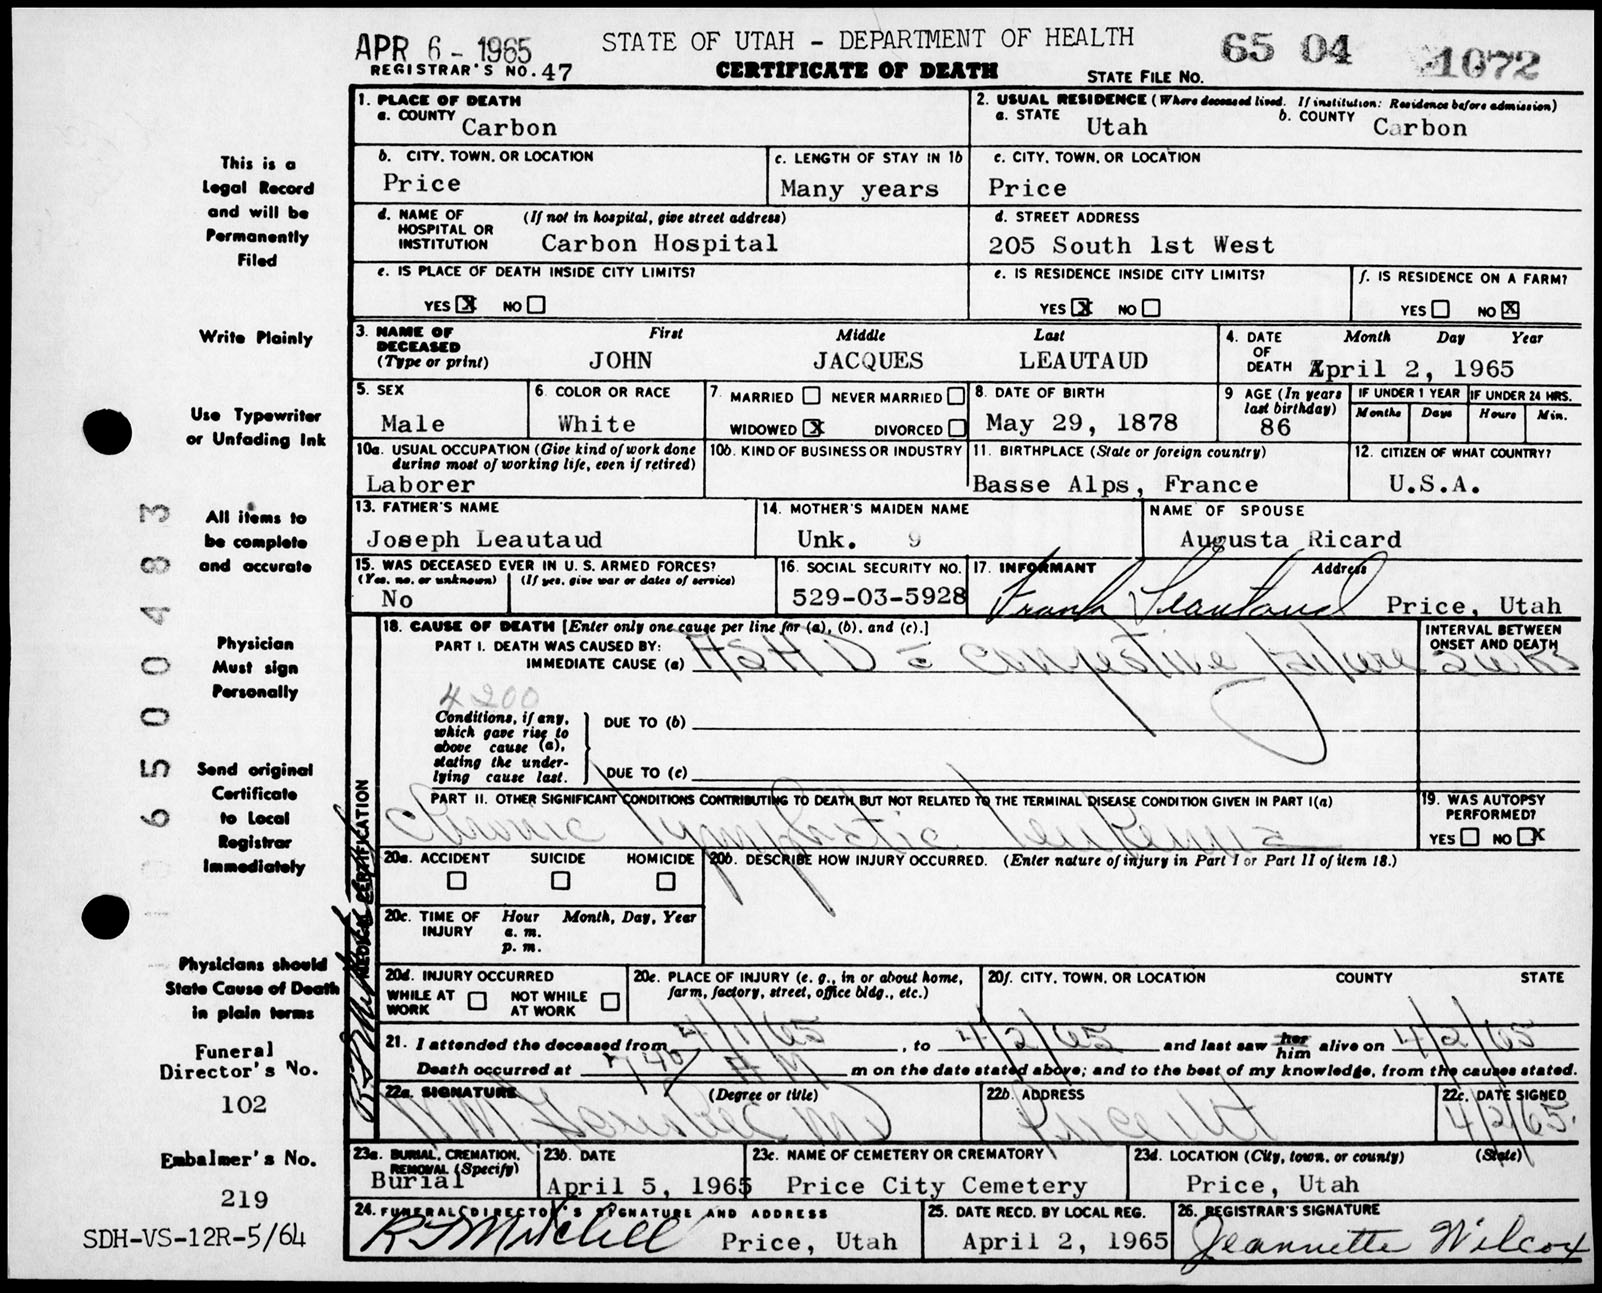 APR 6 - 1965 STATE OF UTAH - DEPARTMENT OF HEALTH 65 04 1072
REGISTRAR'S NO. 47 CERTIFICATE OF DEATH STATE FILE NO.
1. PLACE OF DEATH
a. COUNTY Carbon
2. USUAL RESIDENCE (Where deceased lived. If institution: Residence before admission)
a. STATE Utah b. COUNTY Carbon
b. CITY, TOWN, OR LOCATION
Price
c. LENGTH OF STAY IN 1b
Many years
c. CITY, TOWN, OR LOCATION
Price
d. NAME OF HOSPITAL OR INSTITUTION (If not in hospital, give street address)
Carbon Hospital
d. STREET ADDRESS
205 South 1st West
e. IS PLACE OF DEATH INSIDE CITY LIMITS?
YES X NO
e. IS RESIDENCE INSIDE CITY LIMITS?
YES X NO
f. IS RESIDENCE ON A FARM?
YES NO X
3. NAME OF DECEASED (Type or print) First Middle Last
JOHN JACQUES LEAUTAUD
4. DATE OF DEATH Month Day Year
April 2, 1965
5. SEX
Male
6. COLOR OR RACE
White
7. MARRIED NEVER MARRIED
WIDOWED X DIVORCED
8. DATE OF BIRTH
May 29, 1878
9 AGE (In years last birthday)
86
IF UNDER 1 YEAR IF UNDER 24 HRS.
Months Days Hours Min.
10a. USUAL OCCUPATION (Give kind of work done during most of working life, even if retired)
Laborer
10b. KIND OF BUSINESS OR INDUSTRY
11. BIRTHPLACE (State or foreign country)
Basse Alps, France
12. CITIZEN OF WHAT COUNTRY?
U.S.A.
13. FATHER'S NAME
Joseph Leautaud
14. MOTHER'S MAIDEN NAME
Unk. 9
NAME OF SPOUSE
Augusta Ricard
15. WAS DECEASED EVER IN U. S. ARMED FORCES?
(Yes, no, or unknown) (If yes, give war or dates of service)
No
16. SOCIAL SECURITY NO.
529-03-5928
17. INFORMANT Address
Frank Leautaud Price, Utah
MEDICAL CERTIFICATION
18. CAUSE OF DEATH [Enter only one cause per line for (a), (b), and (c).]
PART I. DEATH WAS CAUSED BY:
IMMEDIATE CAUSE (a) ASHD c congestive failure
INTERVAL BETWEEN ONSET AND DEATH
2 wks
4200
Conditions, if any, which gave rise to above cause (a), stating the underlying cause last.
DUE TO (b)
DUE TO (c)
PART II. OTHER SIGNIFICANT CONDITIONS CONTRIBUTING TO DEATH BUT NOT RELATED TO THE TERMINAL DISEASE CONDITION GIVEN IN PART I(a)
Chronic lymphatic leukemia
19. WAS AUTOPSY PERFORMED?
YES NO X
20a. ACCIDENT SUICIDE HOMICIDE
20b. DESCRIBE HOW INJURY OCCURRED. (Enter nature of injury in Part I or Part II of item 18.)
20c. TIME OF INJURY Hour Month, Day, Year
a. m.
p. m.
20d. INJURY OCCURRED
WHILE AT WORK NOT WHILE AT WORK
20e. PLACE OF INJURY (e. g., in or about home, farm, factory, street, office bldg., etc.)
20f. CITY, TOWN, OR LOCATION COUNTY STATE
21. I attended the deceased from 4/1/65, to 4/2/65 and last saw her him alive on 4/2/65
Death occurred at 740 AM m on the date stated above; and to the best of my knowledge, from the causes stated.
22a. SIGNATURE (Degree or title)
MD
22b. ADDRESS
Price Ut
22c. DATE SIGNED
4/2/65.
23a. BURIAL, CREMATION, REMOVAL (Specify)
Burial
23b. DATE
April 5, 1965
23c. NAME OF CEMETERY OR CREMATORY
Price City Cemetery
23d. LOCATION (City, town, or county) (State)
Price, Utah
24. FUNERAL DIRECTOR'S SIGNATURE AND ADDRESS
R J Mitchell Price, Utah
25. DATE RECD. BY LOCAL REG.
April 2, 1965
26. REGISTRAR'S SIGNATURE
Jeannette Wilcox
This is a
Legal Record
and will be
Permanently
Filed
Write Plainly
Use Typewriter
or Unfading Ink
All items to
be complete
and accurate
Physician
Must sign
Personally
Send original
Certificate
to Local
Registrar
Immediately
Physicians should
State Cause of Death
in plain terms
Funeral
Director's No.
102
Embalmer's No.
219
SDH-VS-12R-5/64
106500483